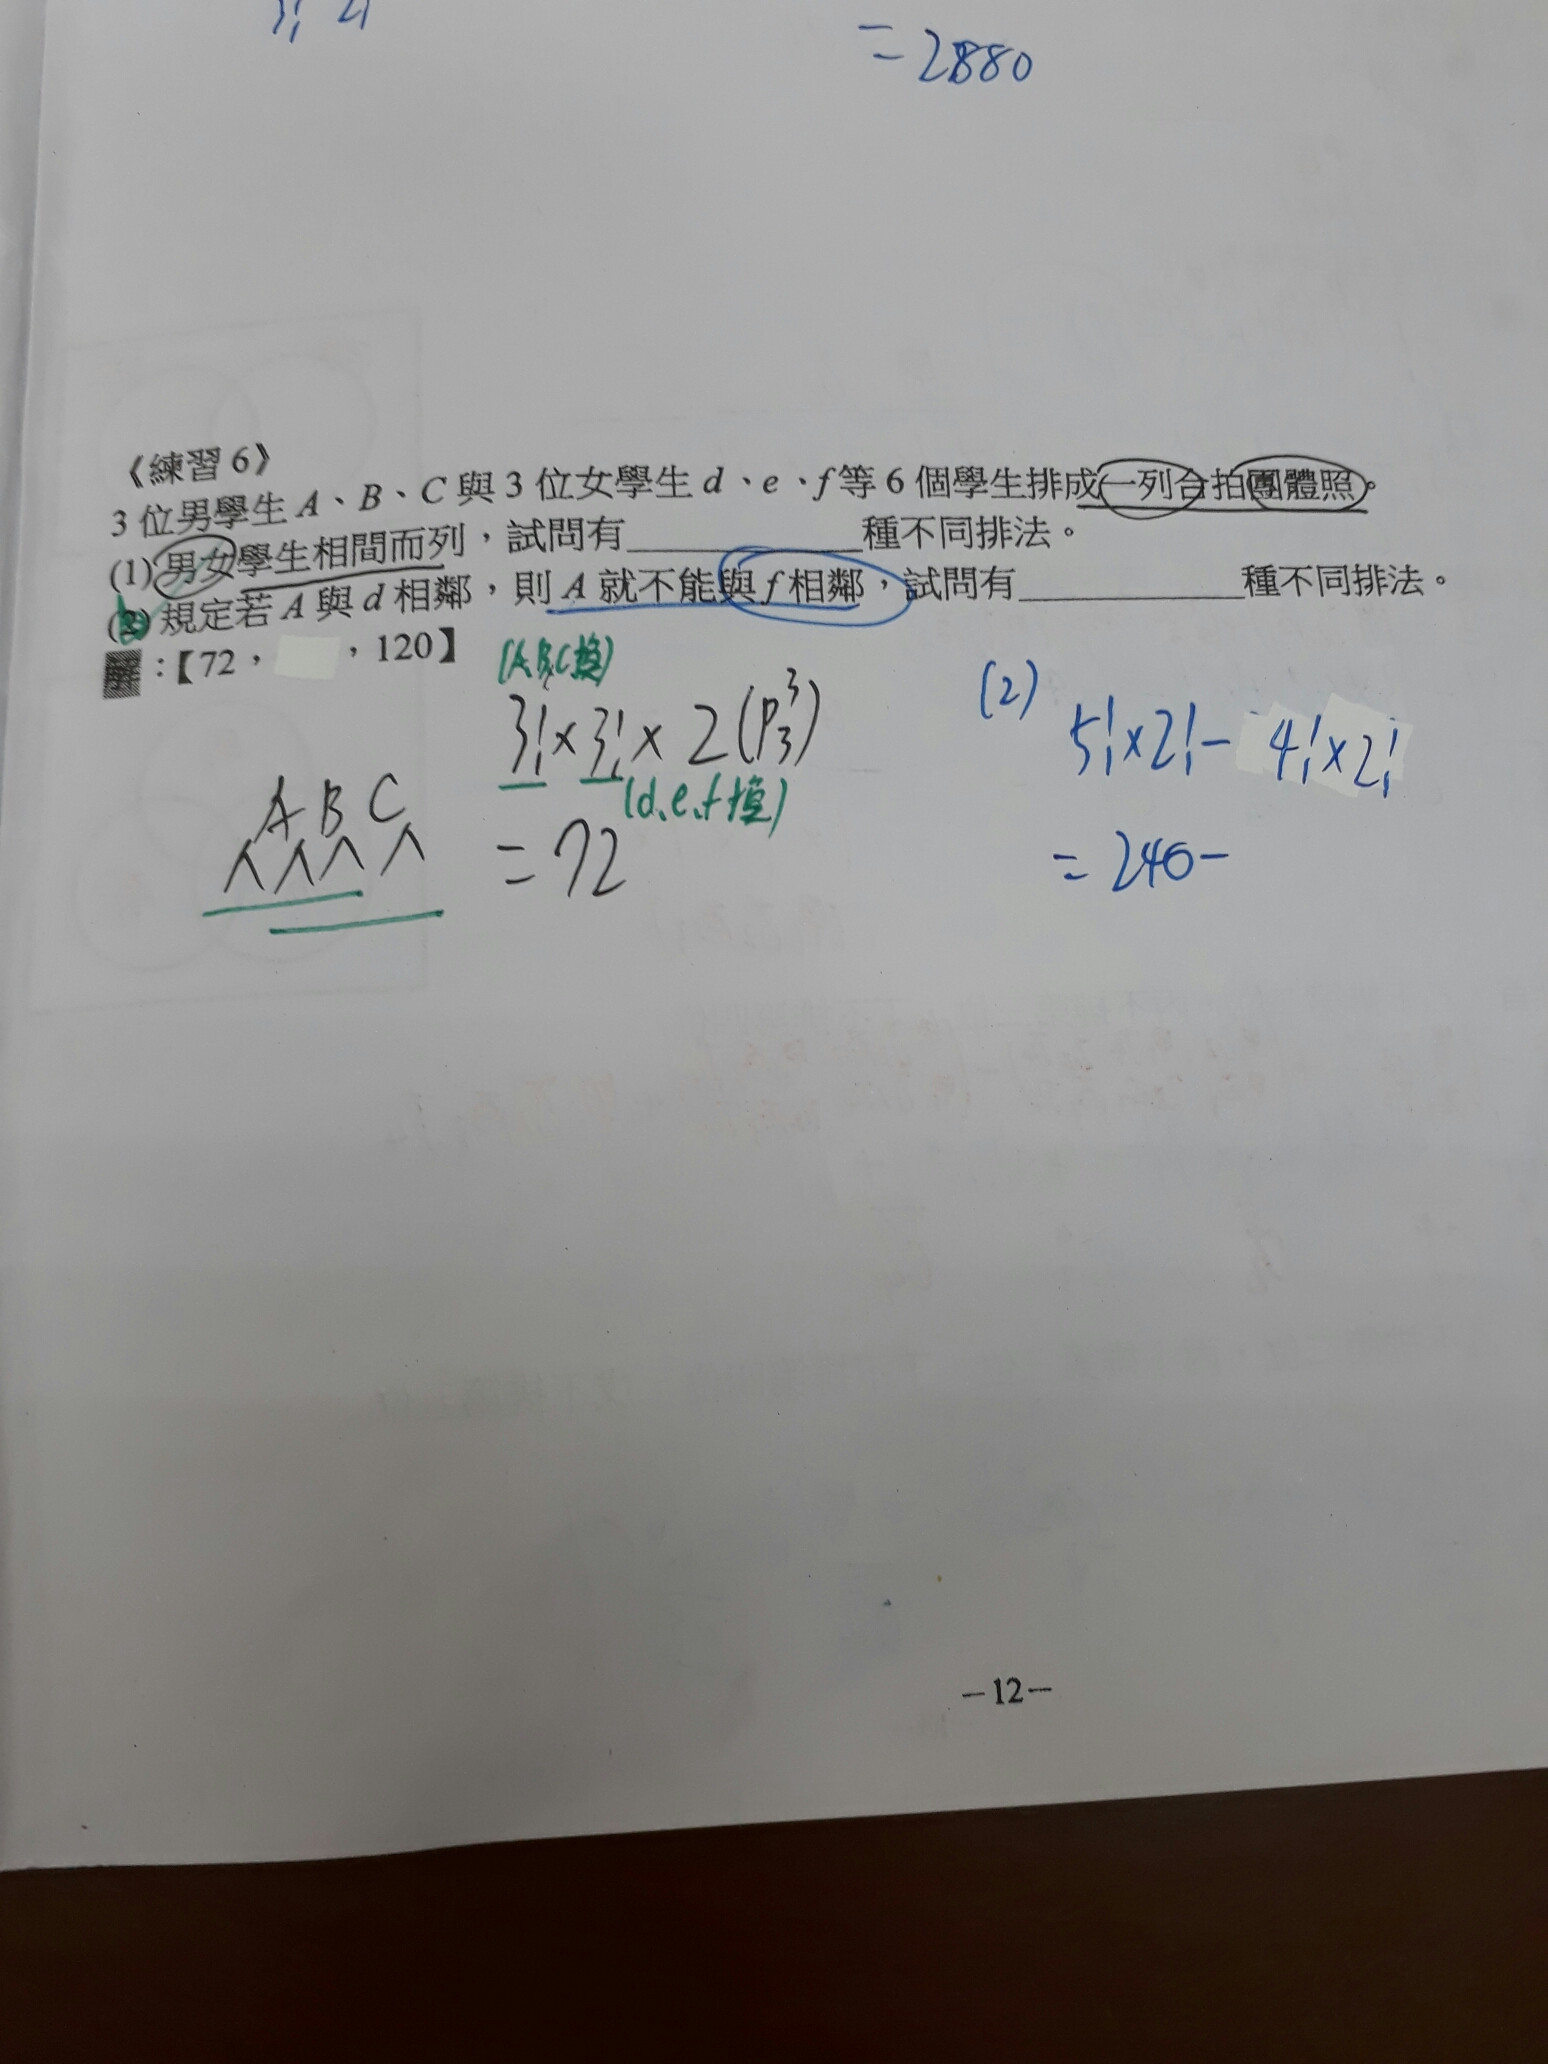 = 2880
《練習 6》
3 位男學生 A、B、C 與 3 位女學生 d、e、f 等 6 個學生排成一列合拍團體照。
(1) 男女學生相間而列，試問有____________種不同排法。
規定若 A 與 d 相鄰，則 A 就不能與 f 相鄰，試問有____________種不同排法。
解：【72， ，120】
(A,B,C換)
3! × 3! × 2 (P³₃)
(d、e、f換)
A B C
= 72
(2) 5! × 2! − 4! × 2!
= 240 −
－12－